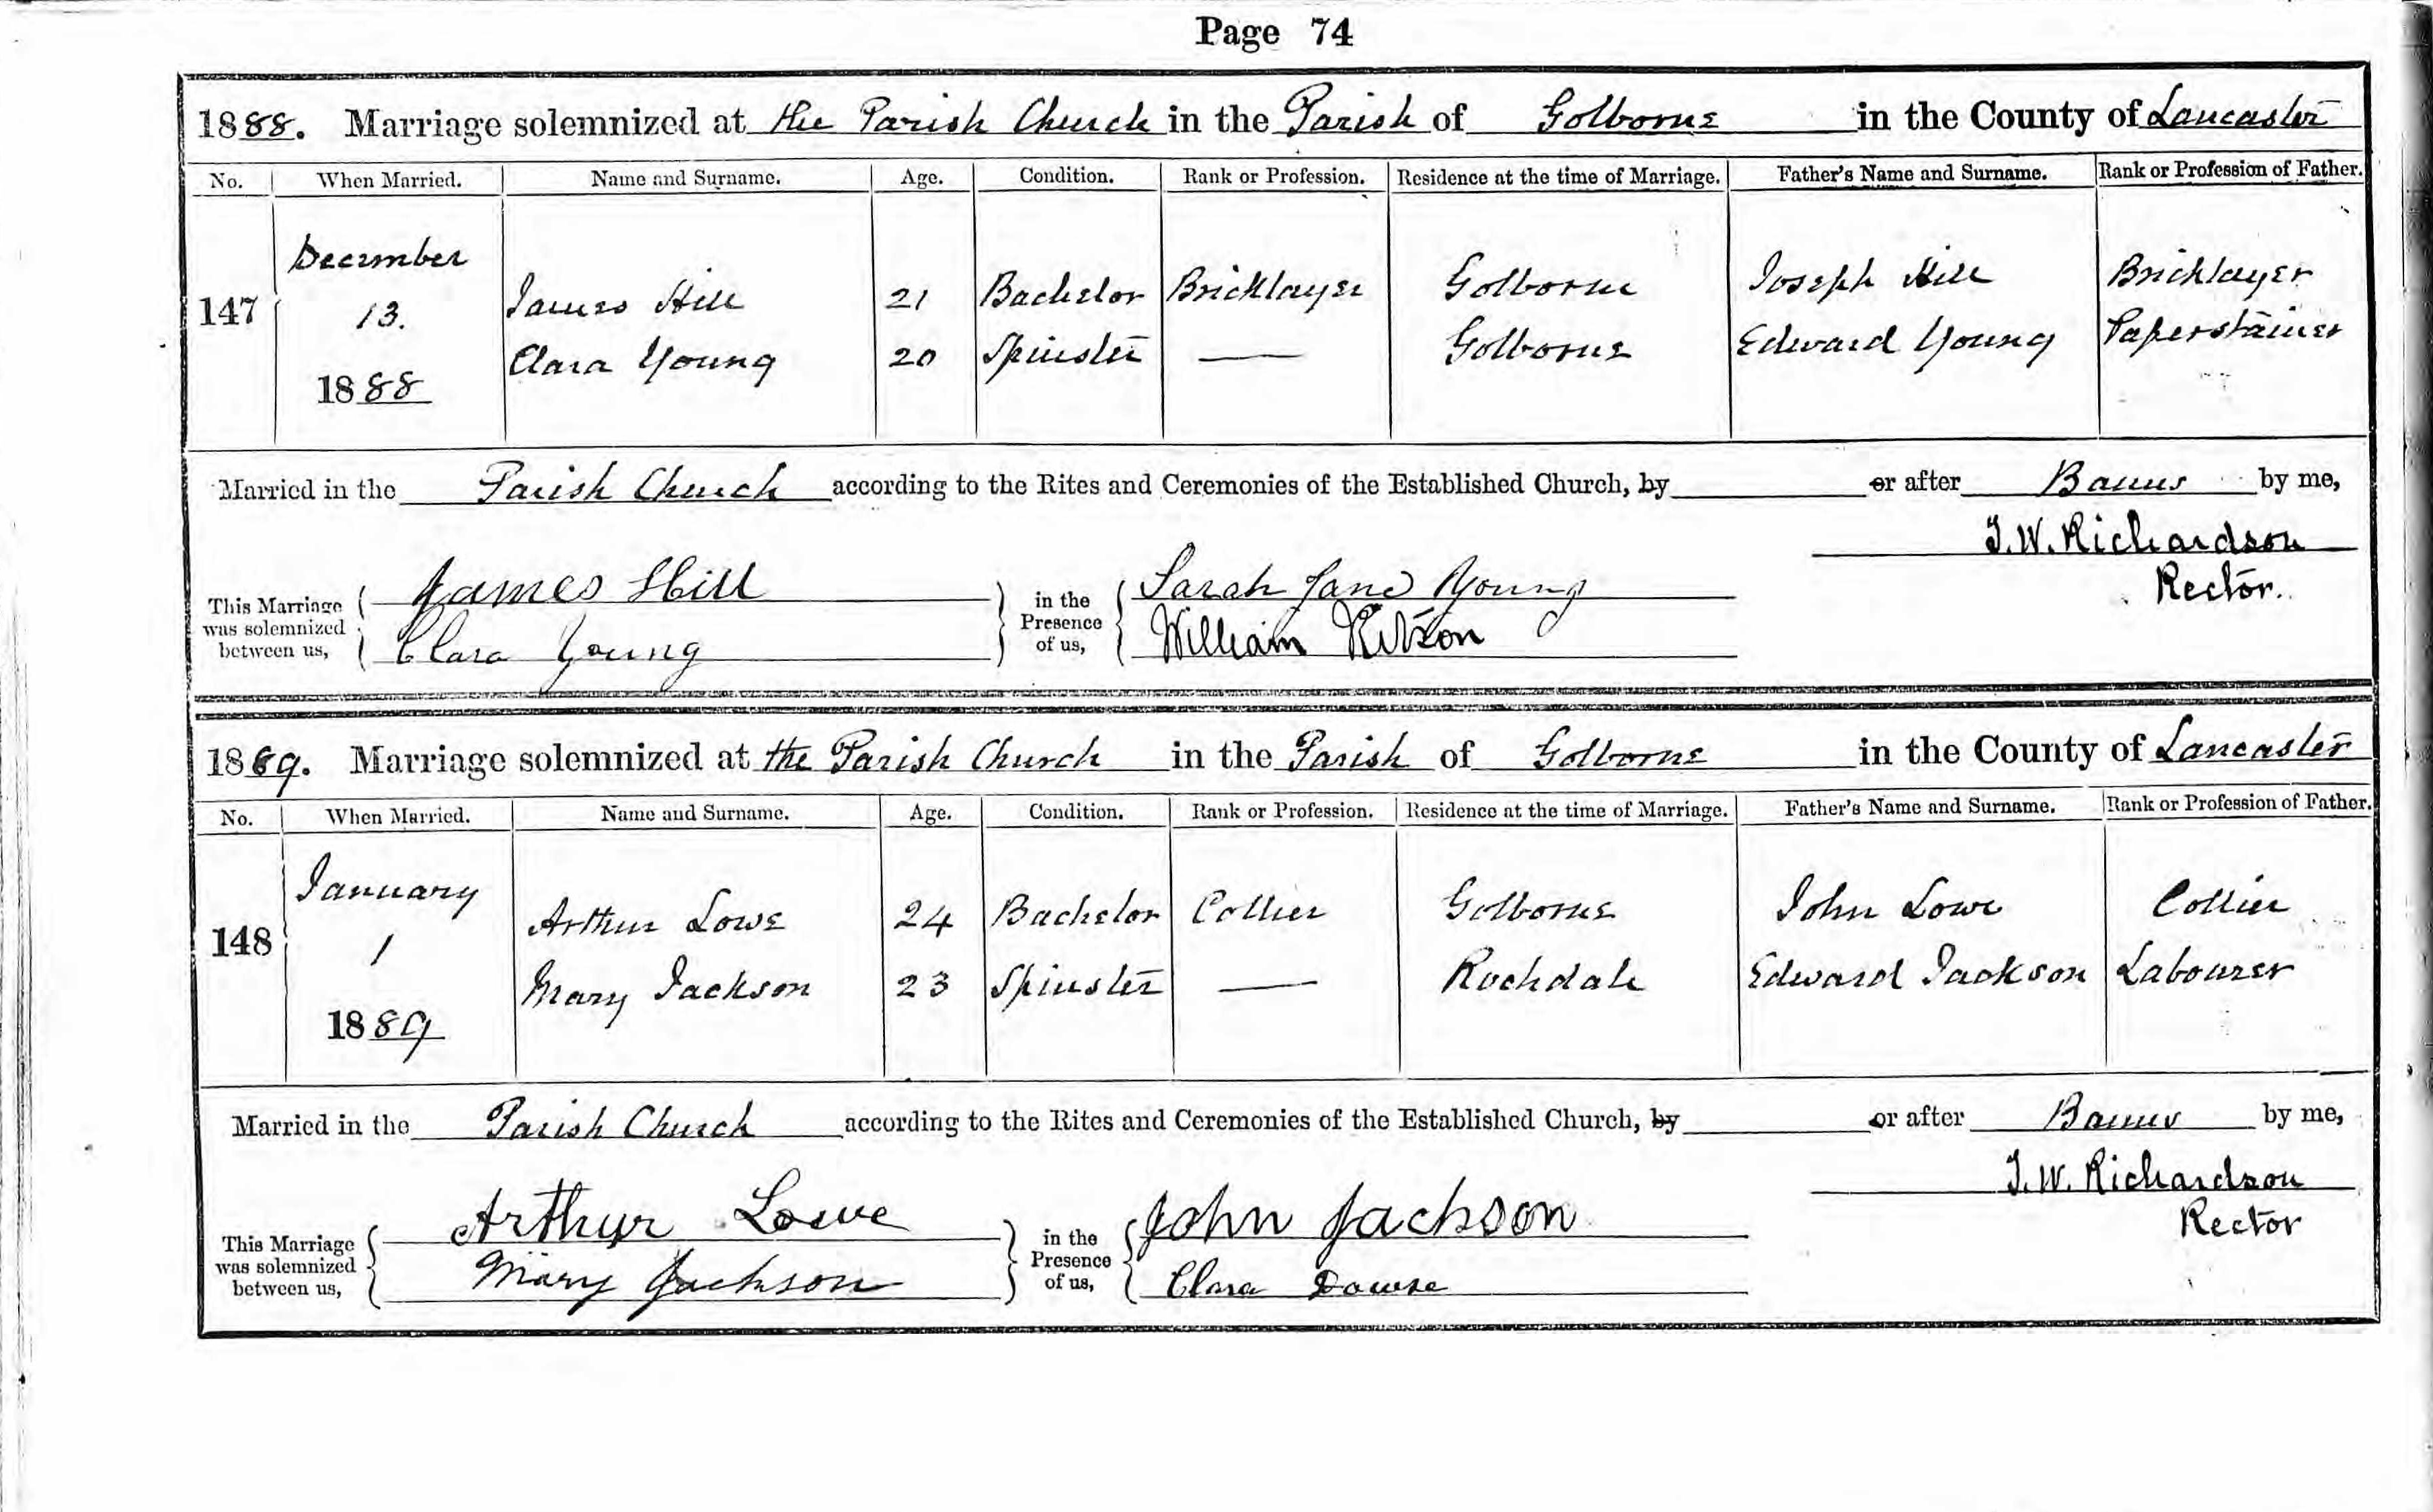 Page 74
1888. Marriage solemnized at the Parish Church in the Parish of Golborne in the County of Lancaster
No. When Married. Name and Surname. Age. Condition. Rank or Profession. Residence at the time of Marriage. Father's Name and Surname. Rank or Profession of Father.
December
147 13. James Hill 21 Bachelor Bricklayer Golborne Joseph Hill Bricklayer
Clara Young 20 Spinster — Golborne Edward Young Paperstainer
1888
Married in the Parish Church according to the Rites and Ceremonies of the Established Church, by or after Banns by me,
T.W. Richardson
Rector.
This Marriage was solemnized between us, James Hill Clara Young in the Presence of us, Sarah Jane Young William
1889. Marriage solemnized at the Parish Church in the Parish of Golborne in the County of Lancaster
No. When Married. Name and Surname. Age. Condition. Rank or Profession. Residence at the time of Marriage. Father's Name and Surname. Rank or Profession of Father.
January
148 1 Arthur Lowe 24 Bachelor Collier Golborne John Lowe Collier
Mary Jackson 23 Spinster — Rochdale Edward Jackson Labourer
1889
Married in the Parish Church according to the Rites and Ceremonies of the Established Church, by or after Banns by me,
T.W. Richardson
Rector
This Marriage was solemnized between us, Arthur Lowe Mary Jackson in the Presence of us, John Jackson Clara Dowse